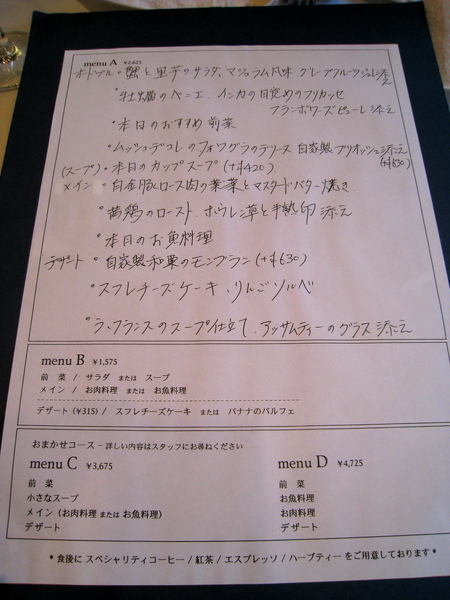 menu A ¥2,625
オードブル・蟹と里芋のサラダ、マジョラム風味 グレープフルーツジュレ添え
・牡蠣のベニエ、インカの目覚めのフリカッセ
フランボワーズピューレ添え
・本日のおすすめ前菜
・ムッシュテコレのフォワグラのテリーヌ 自家製ブリオッシュ添え
(スープ)・本日のカップスープ (+¥420) (+¥630)
メイン・白金豚ロース肉の香菜とマスタードバター焼き
・茜鶏のロースト、ホウレン草と半熟卵添え
・本日のお魚料理
デザート・自家製和栗のモンブラン (+¥630)
・スフレチーズケーキ、りんごソルベ
・ラ・フランスのスープ仕立て、アッサムティーのグラス添え
menu B ¥1,575
前 菜 / サラダ または スープ
メイン / お肉料理 または お魚料理
デザート (¥315) / スフレチーズケーキ または バナナのパルフェ
おまかせコース – 詳しい内容はスタッフにお尋ねください
menu C ¥3,675 menu D ¥4,725
前 菜 前 菜
小さなスープ お魚料理
メイン (お肉料理 または お魚料理) お肉料理
デザート デザート
* 食後に スペシャリティコーヒー / 紅茶 / エスプレッソ / ハーブティー をご用意しております *